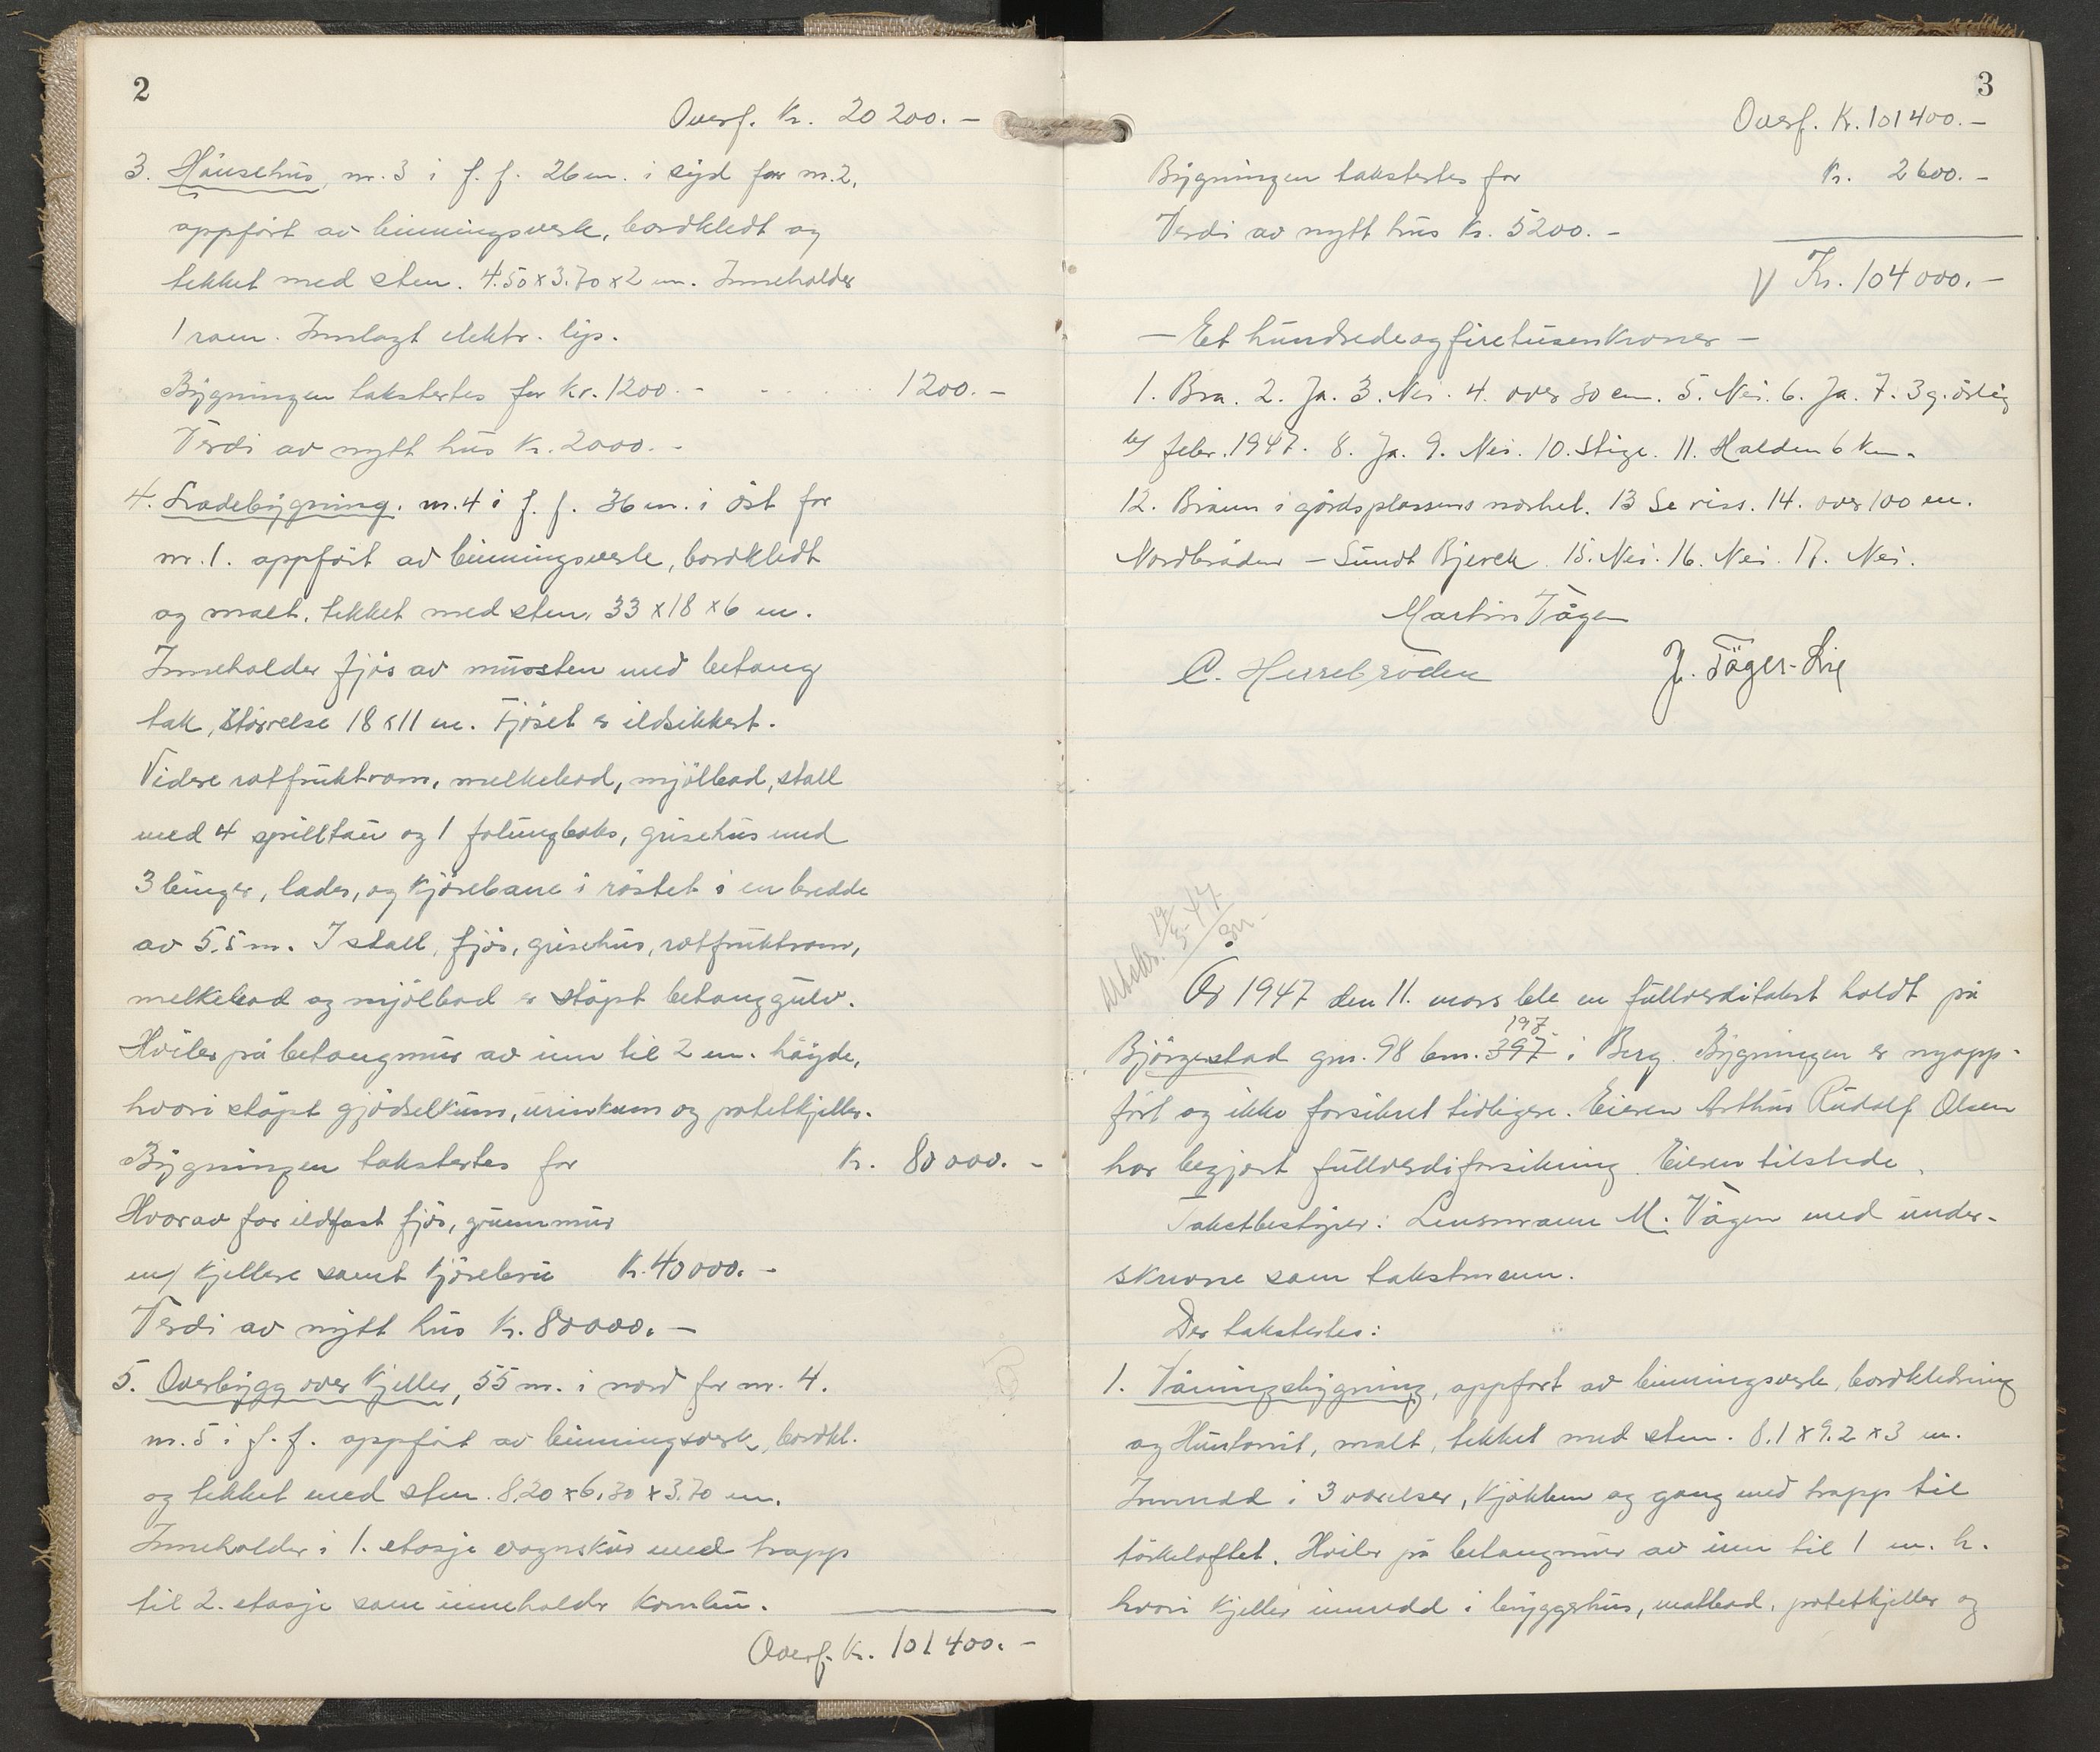 2
Overf. Kr. 20 200. –
3. Hönsehus, nr. 3 i f. f. 26 m. i syd for nr. 2,
oppfört av binningsverk, bordkledt og
tekket med sten. 4.50 x 3.70 x 2 m. Inneholder
1 rom. Innlagt elektr. lys.
Bygningen taksertes for Kr. 1200. – 1200. –
Verdi av nytt hus Kr. 2000. –
4. Ladebygning. nr. 4 i f. f. 36 m. i öst for
nr. 1. oppfört av binningsverk, bordkledt
og malt, tekket med sten. 33 x 18 x 6 m.
Inneholder fjös av mursten med betong
tak, störrelse 18 x 11 m. Fjöset er ildsikkert.
Videre rotfruktrom, melkebod, mjölbod, stall
med 4 spilltau og 1 folungboks, grisehus med
3 binger, lader, og kjörebane i röstet i en bredde
av 5.5 m. I stall, fjös, grisehus, rotfruktrom,
melkebod og mjölbod er stöpt betonggulv.
Hviler på betongmur av inn til 2 m. höyde,
hvori stöpt gjödselkum, urinkum og potetkjeller.
Bygningen taksertes for Kr. 80 000. –
Hvorav for ildfast fjös, grunnmur
m/ kjellere samt kjörebru Kr. 40 000. –
Verdi av nytt hus Kr. 80 000. –
5. Overbygg over kjeller, 55 m. i nord for nr. 4.
nr. 5 i f. f. oppfört av binningsverk, bordkl.
og tekket med sten. 8.20 x 6.30 x 3.70 m.
Inneholder i 1. etasje vognskur med trapp
til 2. etasje som inneholder kornbu.
Overf. Kr. 101 400. –
3
Overf. Kr. 101 400. –
Bygningen taksertes for Kr. 2600. –
Verdi av nytt hus Kr. 5200. –
V Kr. 104 000. –
– Et hundrede og firetusen kroner –
1. Bra. 2. Ja. 3. Nei. 4. over 30 cm. 5. Nei. 6. Ja. 7. 3 g. årlig
febr. 1947. 8. Ja. 9. Nei. 10. Stige. 11. Halden 6 km.
12. Brönn i gårdsplassens nærhet. 13 Se riss. 14. over 100 m.
Nordbröden – Sundt Bjerck. 15. Nei. 16. Nei. 17. Nei.
Martin Vågen
O. Herrebröden J. Töger-Lie
Utskr. 19/5-47
År 1947 den 11. mars ble en fullverditakst holdt på
198
Björgestad gnr. 98 bnr. 397 i Berg. Bygningen er nyopp-
fört og ikke forsikret tidligere. Eieren Arthur Rudolf Olsen
har begjært fullverdiforsikring. Eieren tilstede.
Takstbestyrer: Lensmann M. Vågen med under-
skrevne som takstmenn.
Der taksertes:
1. Våningsbygning, oppfört av binningsverk, bordkledning
og Huntonit, malt, tekket med sten. 8.1 x 9.2 x 3 m.
Innredd i 3 værelser, kjökken og gang med trapp til
törkeloftet. Hviler på betongmur av inn til 1 m. h.
hvori kjeller innredd i bryggerhus, matbod, potetkjeller og